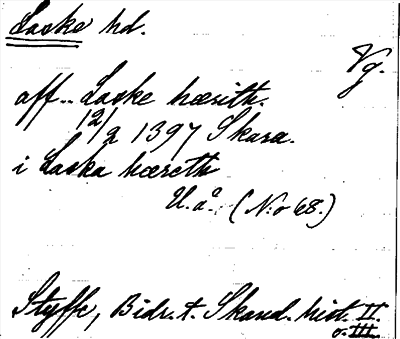 Laske hd.
Vg.
aff.. Laske hærith.
12/2 1397 Skara.
i Laska hæreth
U.å. (No 68.)
Styffe, Bidr. t. Skand. hist. II.
o. III.